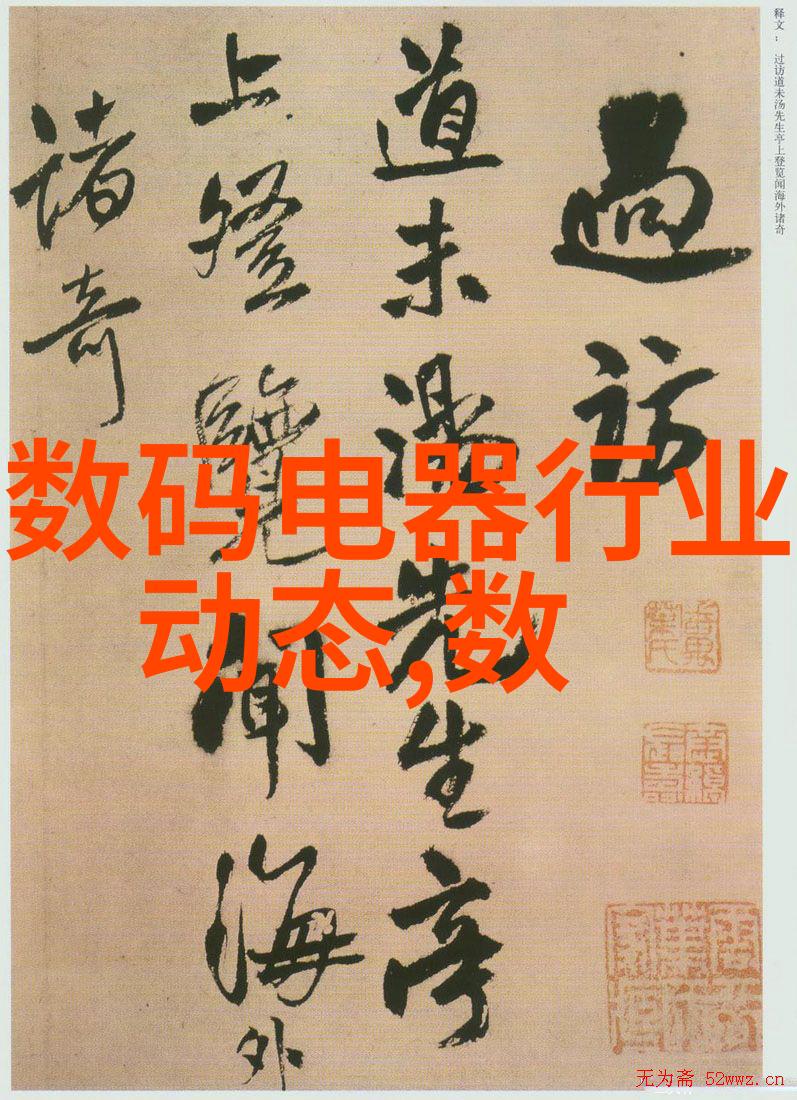 释文： 过访道未汤先生亭上登览闻海外诸奇
過訪
道未湯先生亭
上登覽聞海外
诸奇
数码电器行业
动态,数
无为斋 52wwz.cn